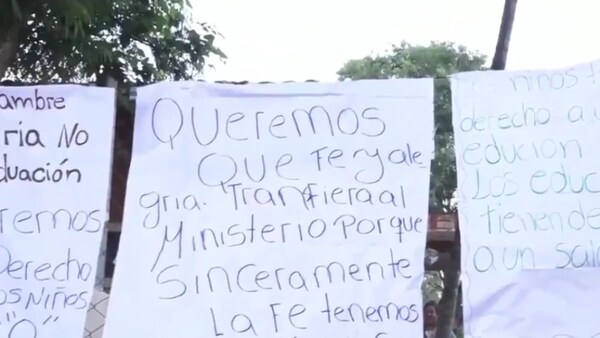 ambre
ria NO
duación
remos
Derecho
os Niños
"O"
Queremos
Que Fe y ale
gria. Tranfiera al
Ministerio Porque
Sinceramente
La Fe tenemos
niños t
derecho a u
educion
Los educ
tienen de
a un sala